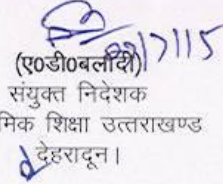 (ए०डी०बलोदी)
संयुक्त निदेशक
मिक शिक्षा उत्तराखण्ड
देहरादून।